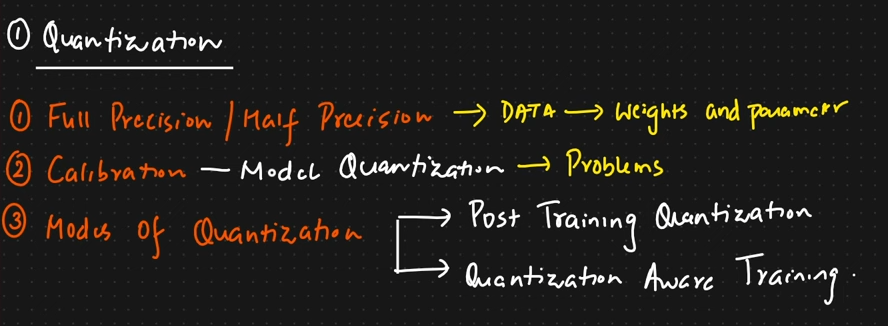 ① Quantization
① Full Precision / Half Precision → DATA → Weights and parameter
② Calibration — Model Quantization → Problems
③ Modes of Quantization → Post Training Quantization
→ Quantization Aware Training.